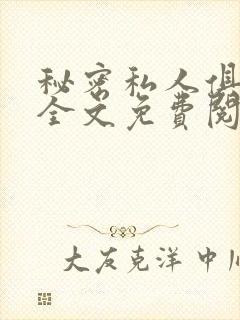 秘密私人俱
全文免費閱
大友克洋 中川